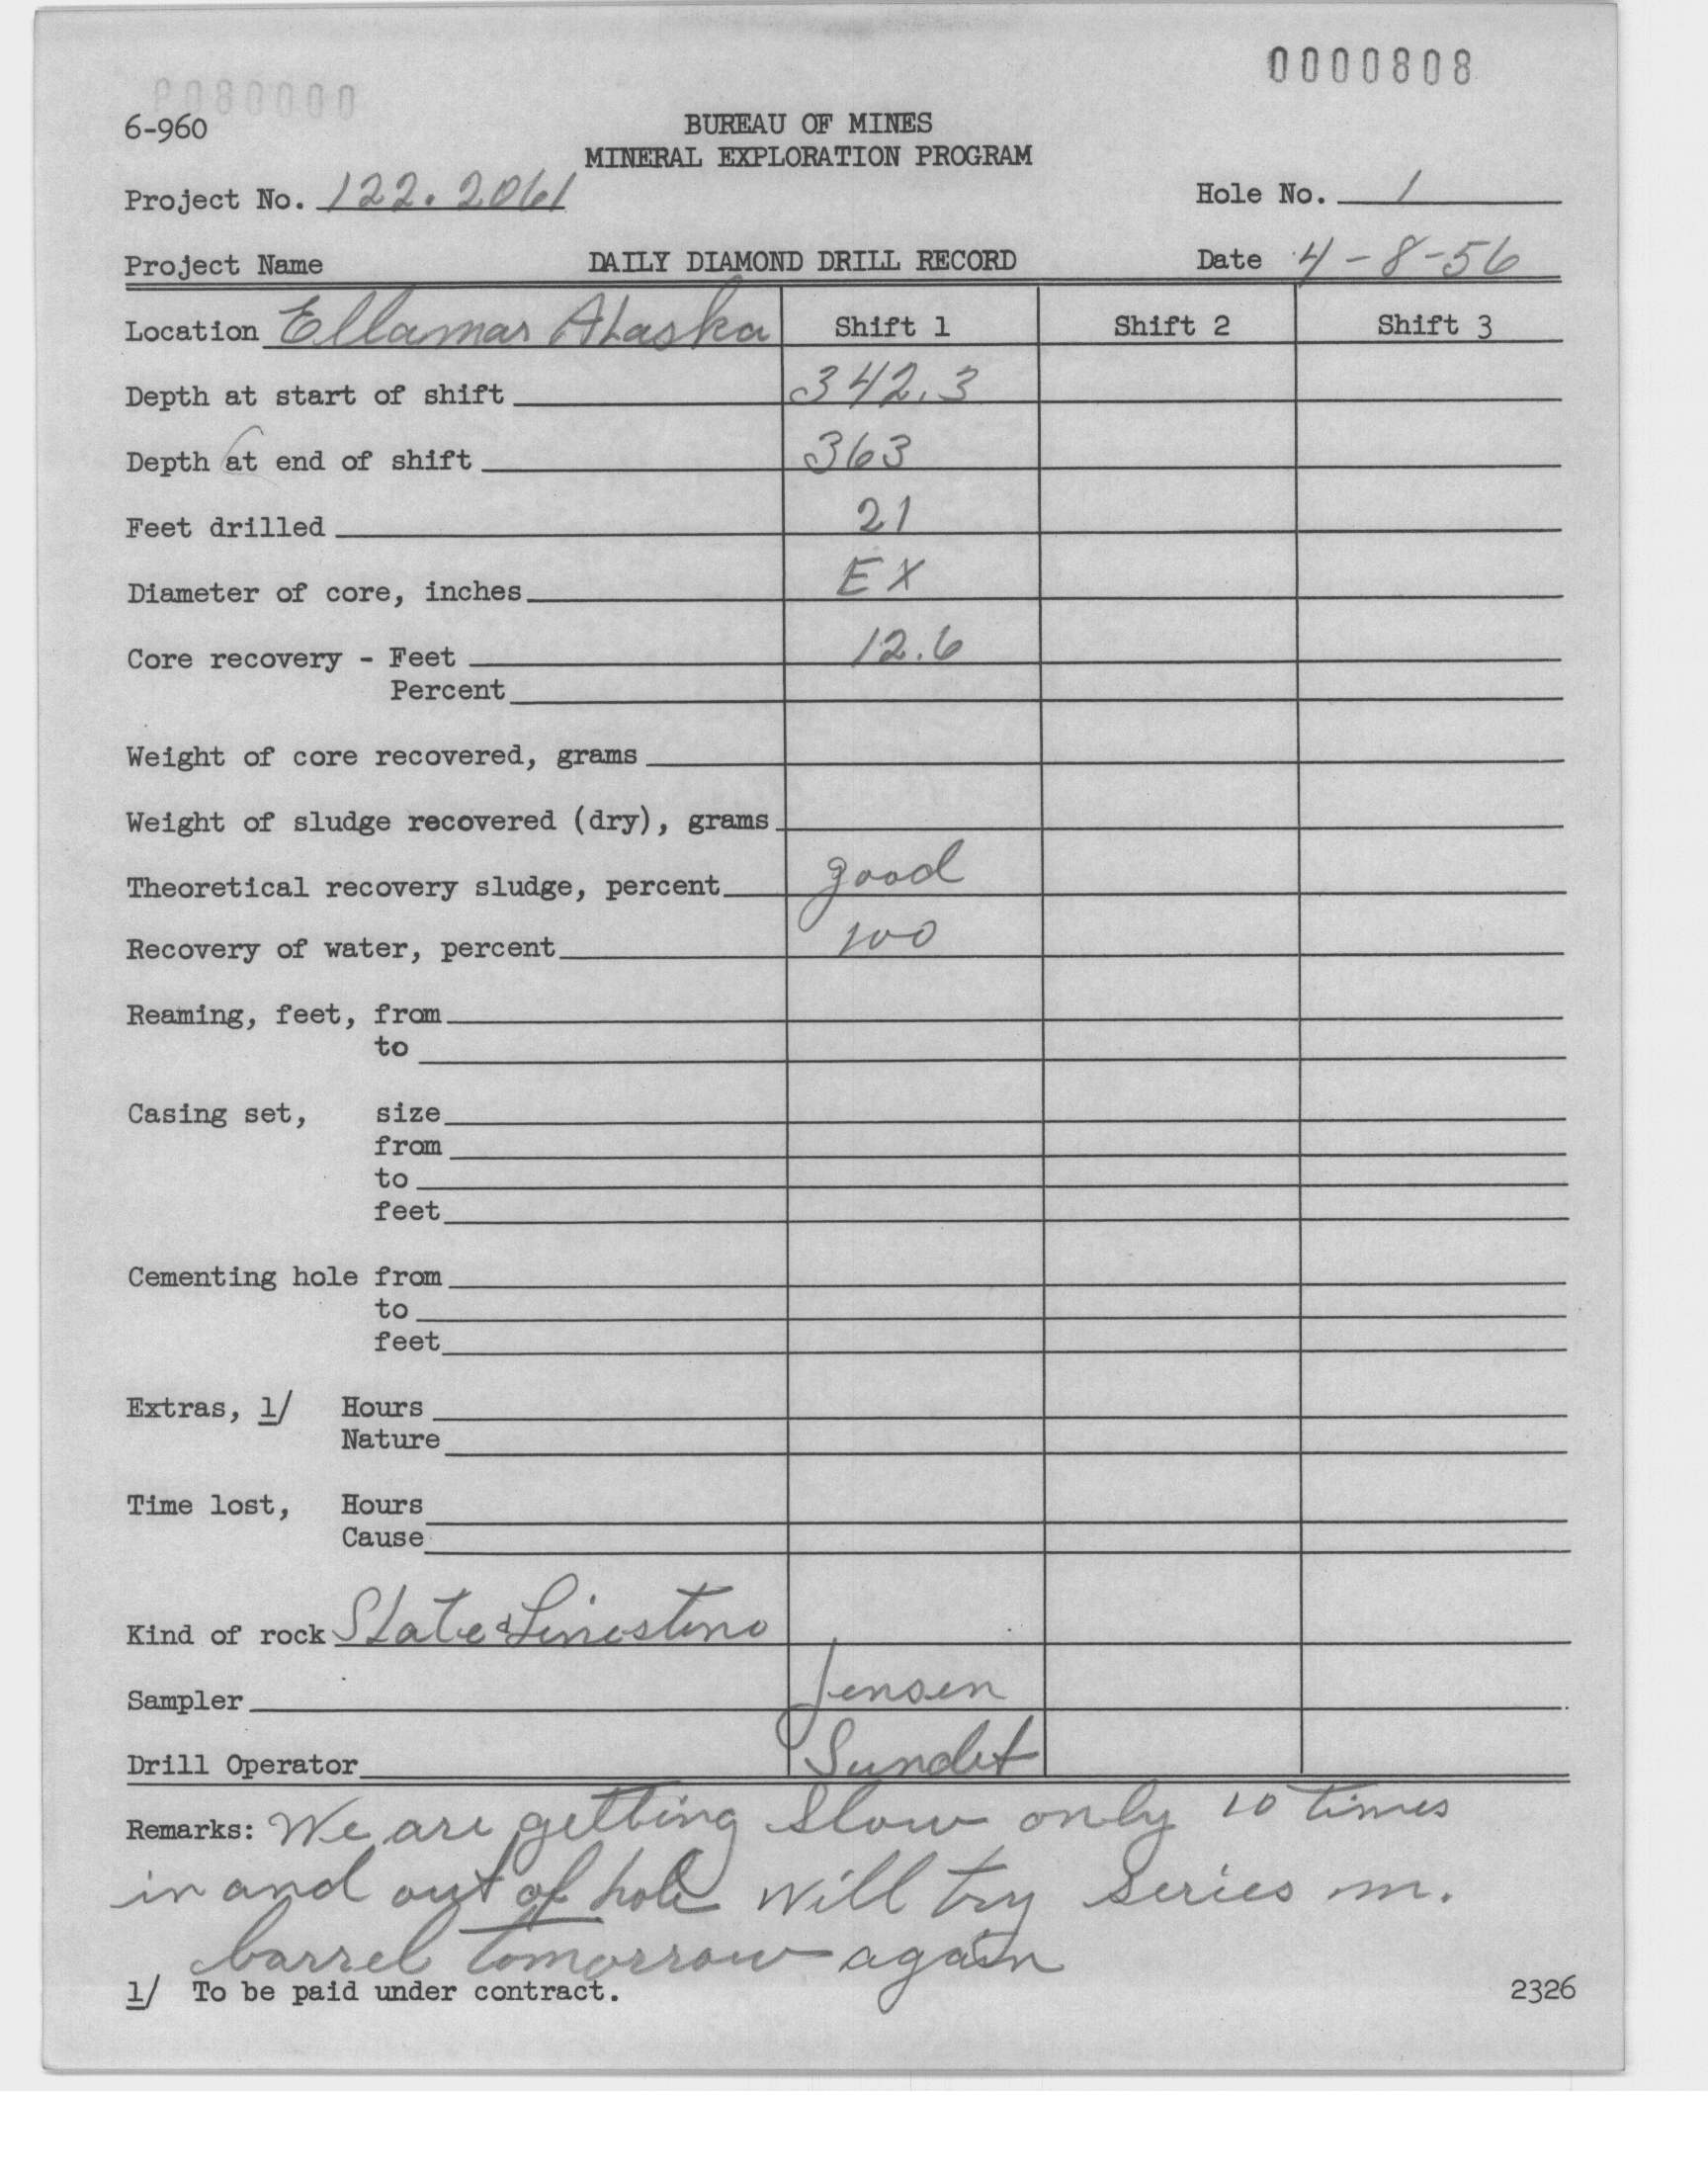 0000808
6-960
BUREAU OF MINES
MINERAL EXPLORATION PROGRAM
Project No. 122.2061 Hole No. 1
Project Name DAILY DIAMOND DRILL RECORD Date 4-8-56
Location Ellamar Alaska Shift 1 Shift 2 Shift 3
Depth at start of shift 342.3
Depth at end of shift 363
Feet drilled 21
Diameter of core, inches EX
Core recovery - Feet 12.6
Percent
Weight of core recovered, grams
Weight of sludge recovered (dry), grams
Theoretical recovery sludge, percent good
Recovery of water, percent 100
Reaming, feet, from
to
Casing set, size
from
to
feet
Cementing hole from
to
feet
Extras, 1/ Hours
Nature
Time lost, Hours
Cause
Kind of rock Slate & Limestone
Sampler Jensen
Drill Operator Sundet
Remarks: We are getting slow only 10 times
in and out of hole will try series m.
barrel tomorrow again
1/ To be paid under contract. 2326